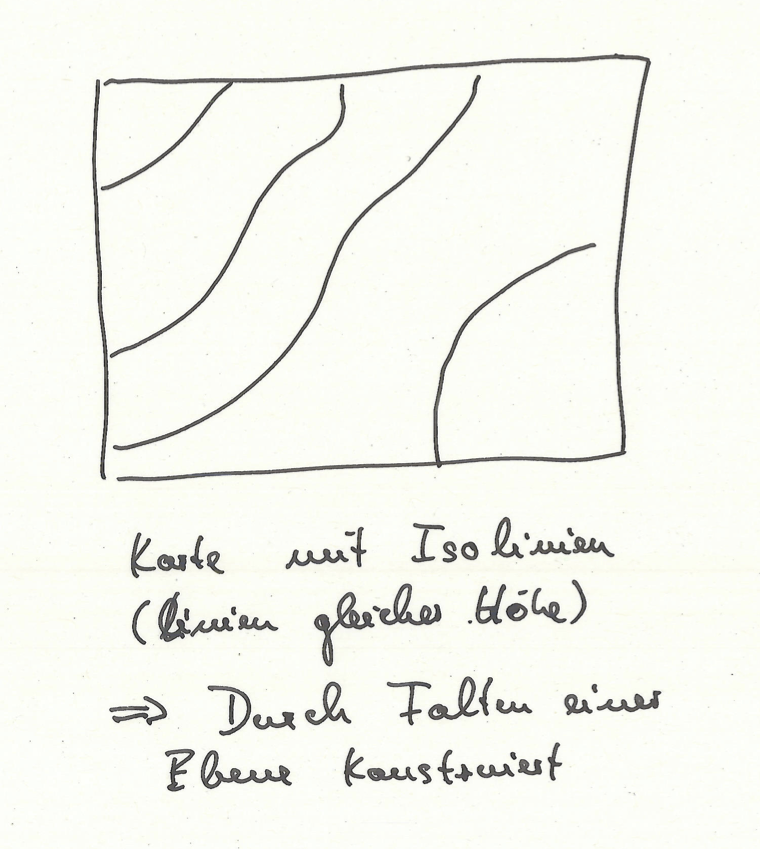 Karte mit Isolinien
(Linien gleicher Höhe)
⇒ Durch Falten einer
Ebene konstruiert